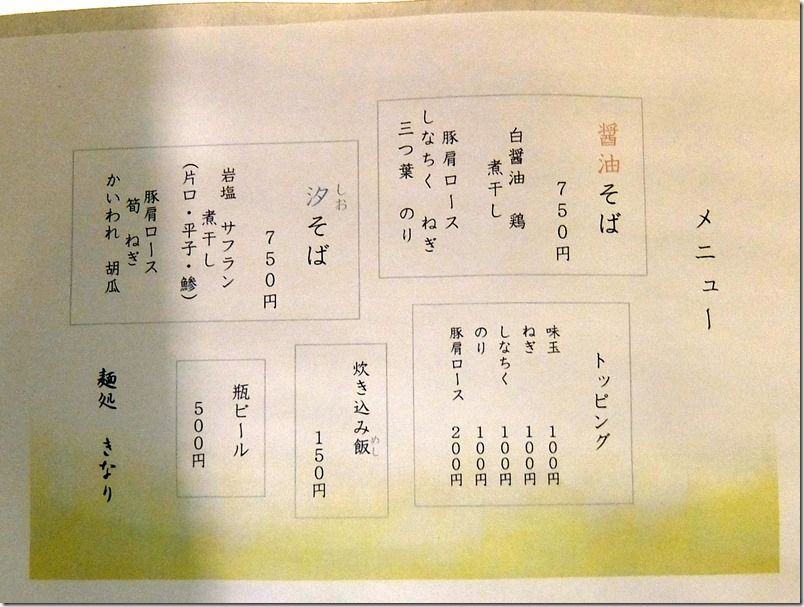 メニュー
醤油そば
750円
白醤油 鶏
煮干し
豚肩ロース
しなちく ねぎ
三つ葉 のり
しお
汐そば
750円
岩塩 サフラン
煮干し
(片口・平子・鯵)
豚肩ロース
筍 ねぎ
かいわれ 胡瓜
トッピング
味玉 100円
ねぎ 100円
しなちく 100円
のり 100円
豚肩ロース 200円
炊き込み飯
めし
150円
瓶ビール
500円
麺処 きなり